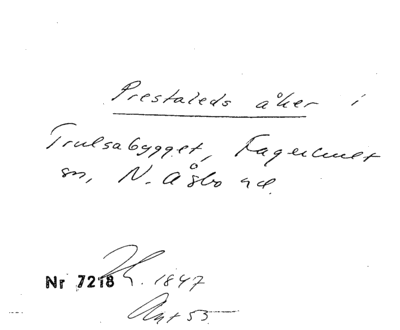 Prestaleds åker i
Trulsabygget, Fagerhult
sn, N. Åsbo hd.
Nr 7218
1847